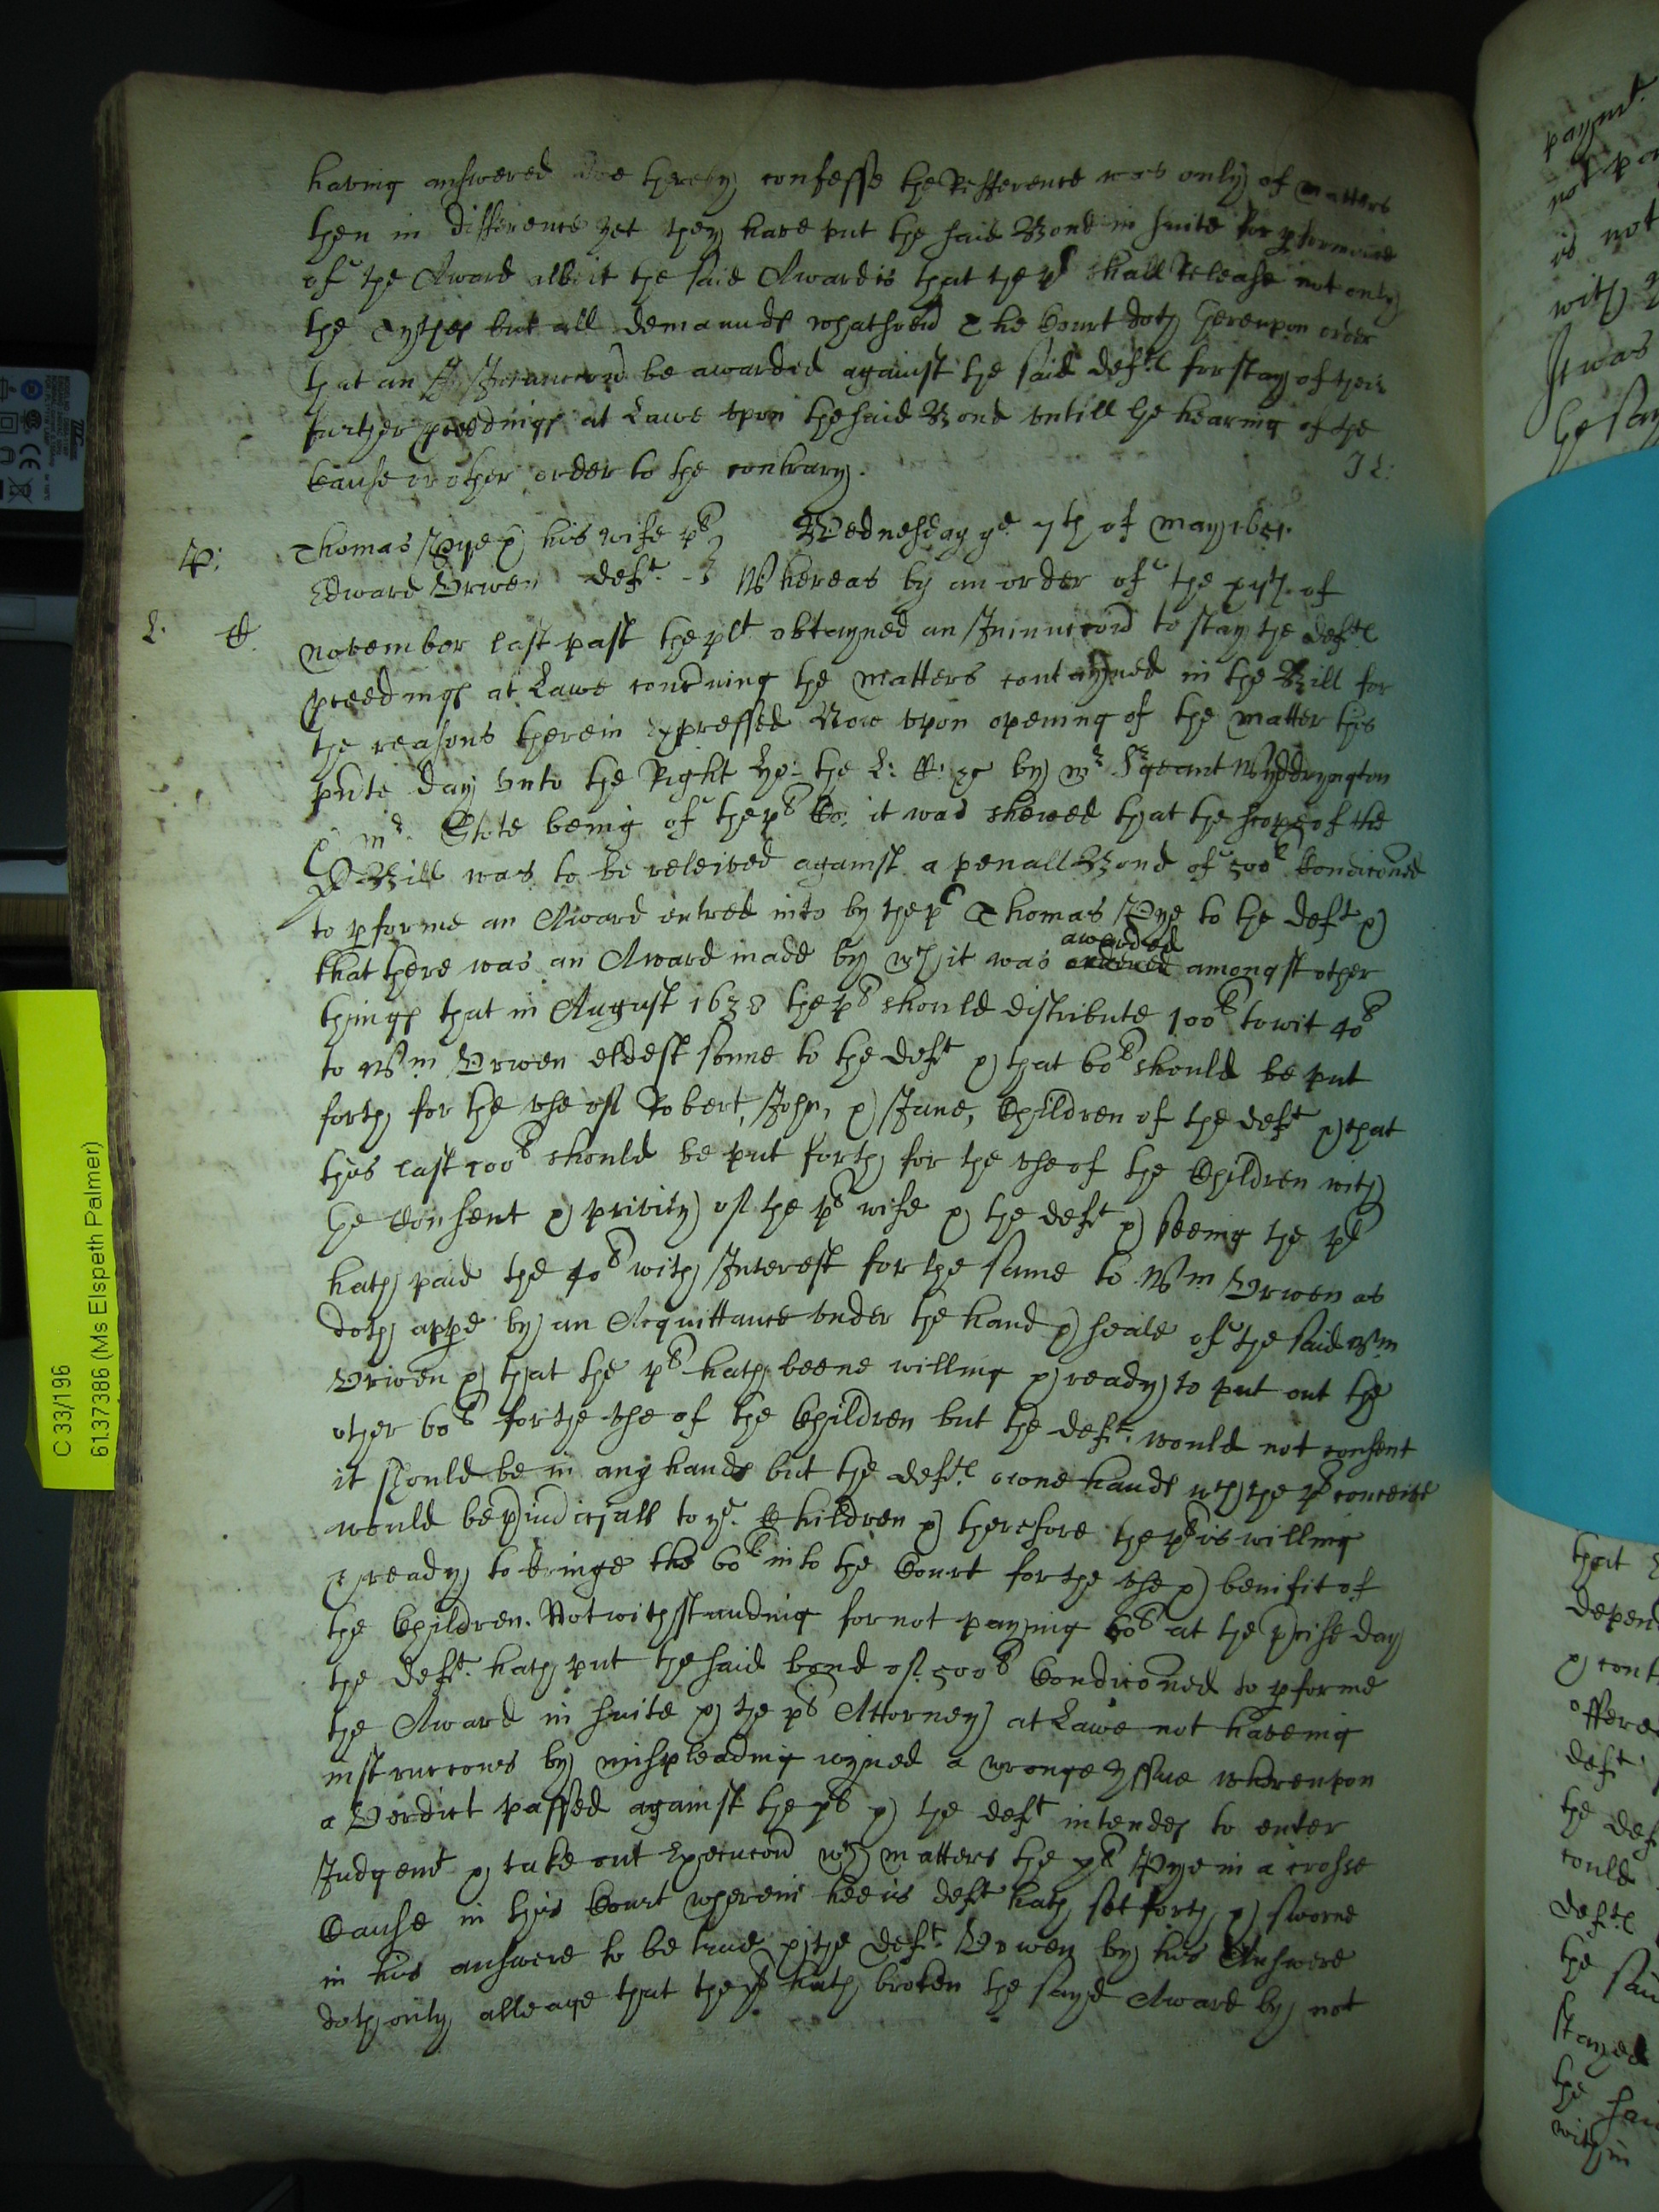 having answered doe thereby confesse the Refference was only of matters
then in difference yet they have put the said Bond in suite for pformance
of the Award albeit the said Award is that the pl shall Release not only
the Tythes but all demaunds whatsoeu The Court doth hereupon order
that an Iniuncon be awarded against the said defts for stay of their
further pceedings at Lawe vpon the said Bond vntill the hearing of the
Cause or other order to the contrary.
J L:
P:
Thomas Pye & his wife pls Wednesday ye 7th of May 1651.
Edward Orwen deft. Whereas by an order of the of
L. C.
November last past the plt obtayned an Iniunccon to stay the defts
pceedings at Lawe concning the matters contayned in the Bill for
the reasons therein Expressed Now vpon opening of the matter this
pnte day vnto the Right the L: C: by Mr Srgeant Wyddryngton
& Mr. Chute being of the pls Co: it was shewed that the scope of the
Bill was to be releived against a penall Bond of 500l Condiconed
to pforme an Award entred into by the pl Thomas Pye to the deft &
that there was an Award made by wch it was ordered awarded amongst other
things that in August 1638 the pl should distribute 100l to wit 40l
to Wm Orwen eldest sonne to the deft & that 60l should be put
forth for the vse of Robert, John, & Jane, Children of the deft & that
this last 100l should be put forth for the vse of the Children with
the Consent & privity of the pls wife & the deft & seeing the pl
hath paid the 40l with Interest for the same to Wm Orwen as
doth appe by an Acquittance vnder the hand & seale of the said Wm
Orwen & that the pl hath beene willing & ready to put out the
other 60l for the vse of the Children but the deft. would not consent
it should be in any hands but the defts owne hands wch the pl conceive
would be piudiciall to ye. Children & therefore the pl is willing
& ready to bringe the 60l into the Court for the vse & benifit of
the Children. Notwithstanding for not paying 60l at the pcise day
the deft. hath put the said bond of 500l Condiconed to pforme
the Award in suite & the pls Attorney at Lawe not haveing
instruccons by mispleading ioyned a wronge Yssue whereupon
a Verdict passed against the pl & the deft intendes to enter
Judgemt & take out Execucon wch matters the pl Pye in a crosse
Cause in this Court wherein hee is deft hath set forth & sworne
in his answere to be true & the deft. Orwen by his Answere
doth only alleage that the pl hath broken the sayd Award by not
C 33/196
6137386 (Ms Elspeth Palmer)
paymt.
not
is not
with
It was
he say
that
depend
& cont
offere
deft
the def
could
defts
the sai
stayed
the sai
within